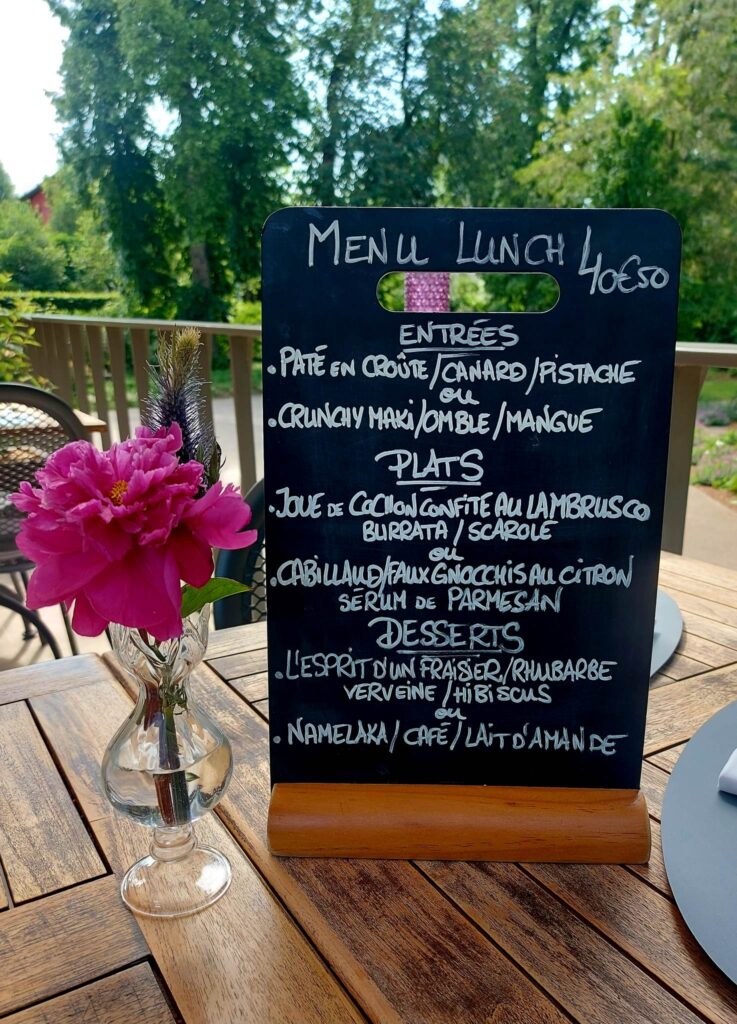 MENU LUNCH 40€50
ENTRÉES
• PATÉ EN CROÛTE/CANARD/PISTACHE
ou
• CRUNCHY MAKI/OMBLE/MANGUE
PLATS
• JOUE DE COCHON CONFITE AU LAMBRUSCO
BURRATA/SCAROLE
ou
• CABILLAUD/FAUX GNOCCHIS AU CITRON
SÉRUM DE PARMESAN
DESSERTS
• L'ESPRIT D'UN FRAISIER/RHUBARBE
VERVEINE/HIBISCUS
ou
• NAMELAKA/CAFÉ/LAIT D'AMANDE